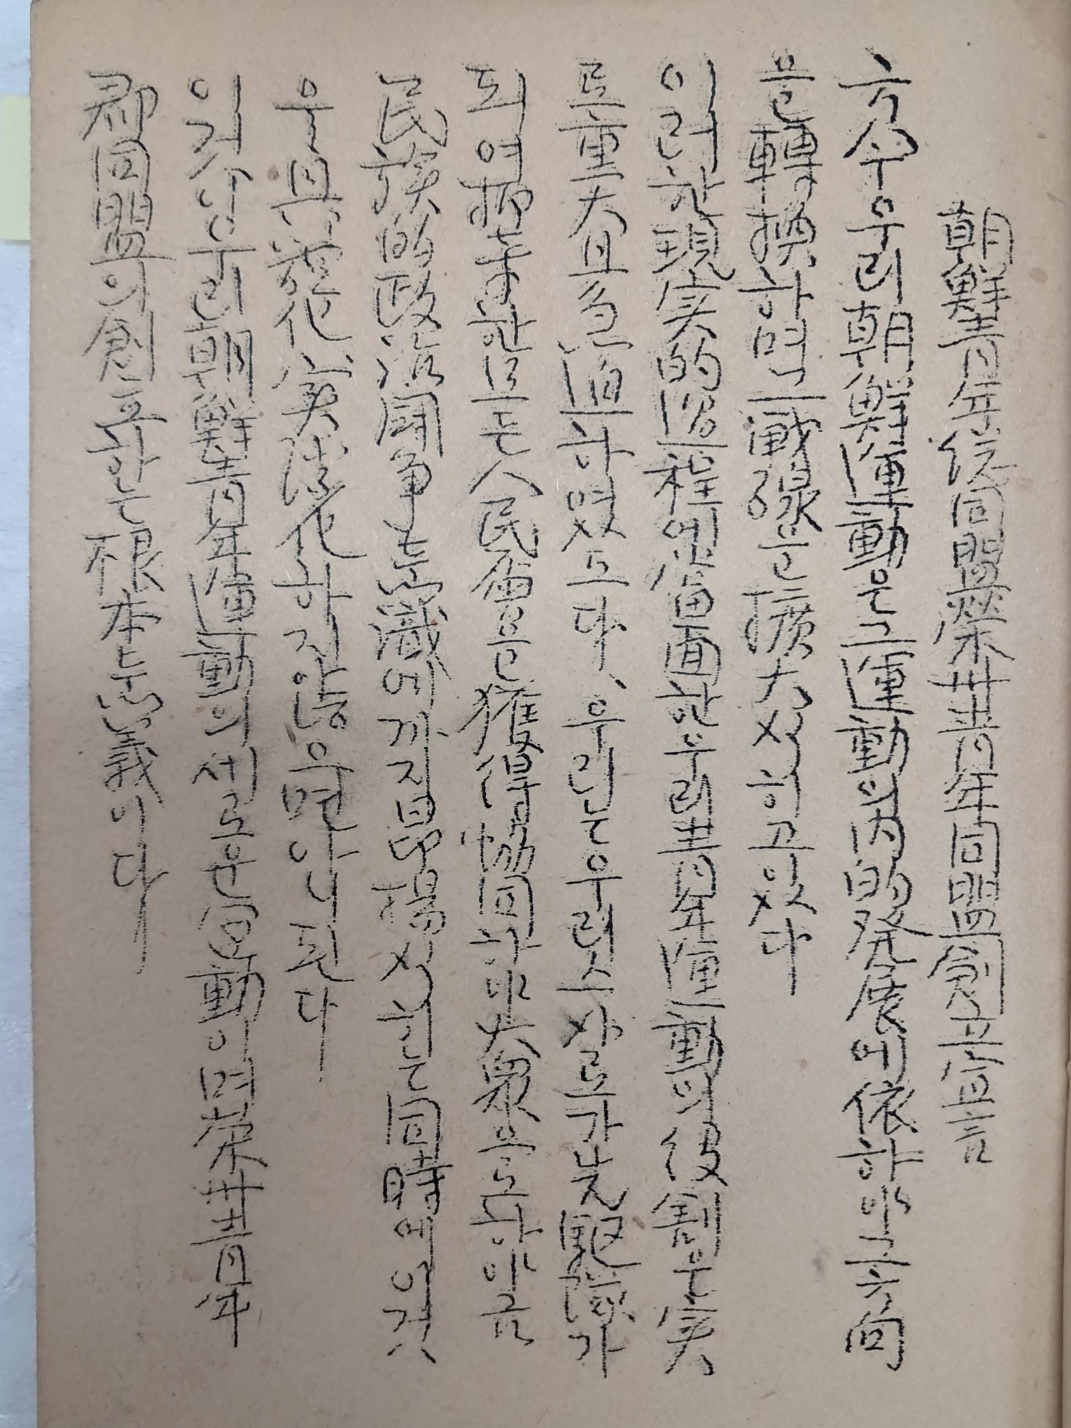 朝鮮青年總同盟榮州青年同盟創立宣言
方今우리朝鮮運動은그運動의內的發展에依하야그方向
을轉換하며그戰線을擴大식히고잇다
이러한現実的過程에當面한우리青年運動의役割은実
로重大且急迫하엿도다、우리는우리스사로가先駆隊가
되여抑壓한모든人民層을獲得協同하야大衆으로하야금
民族的政治鬪爭意識에까지昂揚식히는同時에이것
을具體化実踐化하지안흐면아니된다
이것이우리朝鮮青年運動의새로운運動이며榮州青年
郡同盟의創立하는根本意義이다